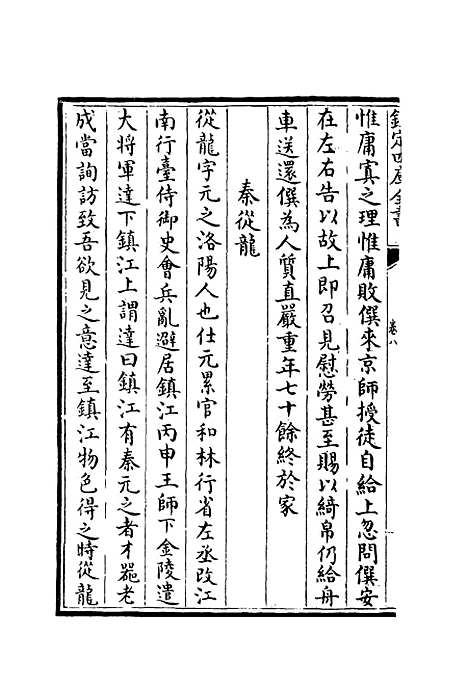 欽定四庫全書
卷八
惟庸寘之理惟庸敗僎來京師授徒自給上忽問僎安
在左右告以故上即召見慰勞甚至賜以綺帛仍給舟
車送還僎為人質直嚴重年七十餘終於家
秦從龍
從龍字元之洛陽人也仕元累官和林行省左丞改江
南行臺侍御史會兵亂避居鎮江丙申王師下金陵遣
大將軍達下鎮江上謂達曰鎮江有秦元之者才器老
成當詢訪致吾欲見之意達至鎮江物色得之時從龍